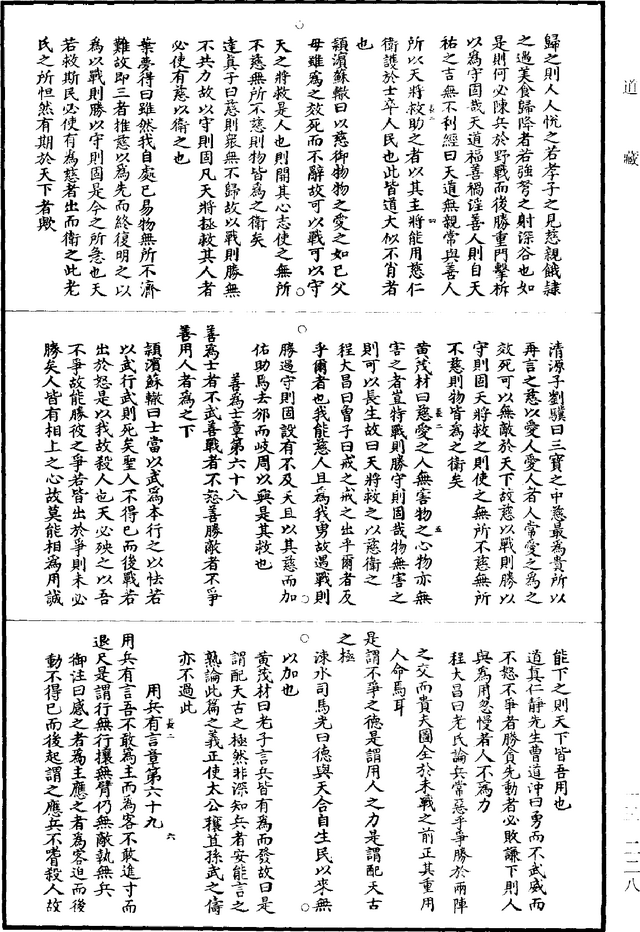 道藏
歸之則人人悅之若孝子之見慈親餓隸
之過美食歸降者若強弩之射深谷也如
是則何必陳兵於野戰而後勝重門擊柝
以爲守固哉天道福善禍淫善人則自天
祐之吉無不利經曰天道無親常與善人
所以天將救助之者以其主將能用慈仁
衞護於士卒人民也此皆道大似不肖者
也
潁濱蘇轍曰以慈御物物之愛之如己父
母雖爲之效死而不辭故可以戰可以守
天之將救是人也則開其心志使之無所
不慈無所不慈則物皆爲之衞矣
達真子曰慈則衆無不歸故以戰則勝無
不共力故以守則固凡天將拯救其人者
必使有慈以衞之也
葉夢得曰雖然我自處已易物無所不濟
難故即三者推慈以爲先而終復明之以
爲以戰則勝以守則固是今之所急也天
若救斯民必使有爲慈者出而衞之此老
氏之所怛然有期於天下者歟
長二 四
清源子劉驥曰三寶之中慈最爲貴所以
再言之慈以愛人愛人者人常愛之爲之
效死可以無敵於天下故慈以戰則勝以
守則固天將救之則使之無所不慈無所
不慈則物皆爲之衞矣
黃茂材曰慈愛之人無害物之心物亦無
害之者豈特戰則勝守則固哉物無害之
則可以長生故曰天將救之以慈衞之
程大昌曰曾子曰戒之戒之出乎爾者反
乎爾者也我能慈人且爲我勇故遇戰則
勝遇守則固設有不及天且以其慈而加
佑助焉去邠而岐周以興是其救也
善爲士章第六十八
善爲士者不武善戰者不怒善勝敵者不爭
善用人者爲之下
潁濱蘇轍曰士當以武爲本行之以怯若
以武行武則死矣聖人不得已而後戰若
出於怒是以我故殺人也天必殃之以吾
不爭故能勝彼之爭若皆出於爭則未必
勝矣人皆有相上之心故莫能相爲用誠
長二 五
能下之則天下皆吾用也
道真仁靜先生曹道沖曰勇而不武威而
不怒不爭者勝貪先動者必敗謙下則人
與爲用忽慢者人不爲力
程大昌曰老氏論兵常惡乎爭勝於兩陣
之交而貴夫圖全於未戰之前正其重用
人命焉耳
是謂不爭之德是謂用人之力是謂配天古
之極
涑水司馬光曰德與天合自生民以來無
以加也
黃茂材曰老子言兵皆有爲而發故曰是
謂配天古之極然非深知兵者安能言之
熟論此篇之義正使太公穰苴孫武之儔
亦不過此
用兵有言章第六十九
用兵有言吾不敢爲主而爲客不敢進寸而
退尺是謂行無行攘無臂仍無敵執無兵
御注曰感之者爲主應之者爲客迫而後
動不得已而後起謂之應兵不嗜殺人故
長二 六
一三·二二八